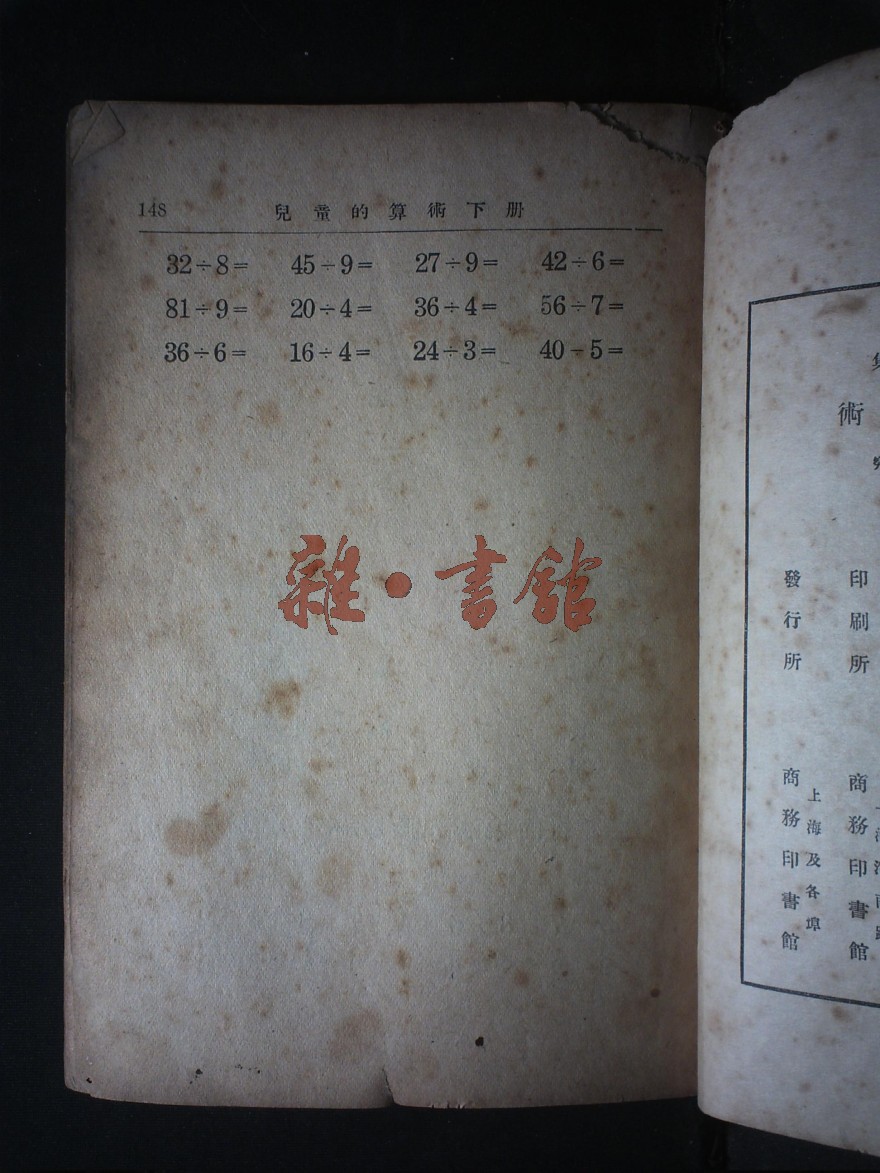 148 兒童的算術下册
32÷8= 45÷9= 27÷9= 42÷6=
81÷9= 20÷4= 36÷4= 56÷7=
36÷6= 16÷4= 24÷3= 40-5=
雜·書館
術
印刷所 商務印書館
發行所 上海及各埠 商務印書館